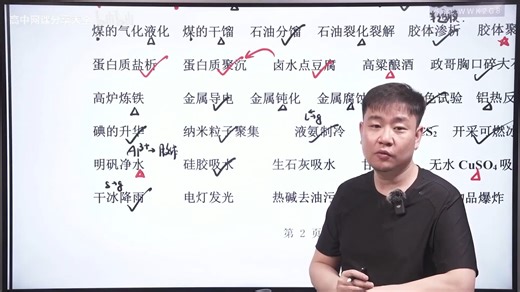 煤的气化液化 煤的干馏 石油分馏 石油裂化裂解 胶体渗析 胶体聚
蛋白质盐析 蛋白质聚沉 卤水点豆腐 高粱酿酒 政哥胸口碎大石
高炉炼铁 金属导电 金属钝化 金属腐蚀 色试验 铝热反
l→g
碘的升华 纳米粒子聚集 液氨制冷 开采可燃冰
Al³⁺→胶体
明矾净水 硅胶吸水 生石灰吸水 甘 无水 CuSO4 吸
s→g
干冰降雨 电灯发光 热碱去油污 品爆炸
第 2 页